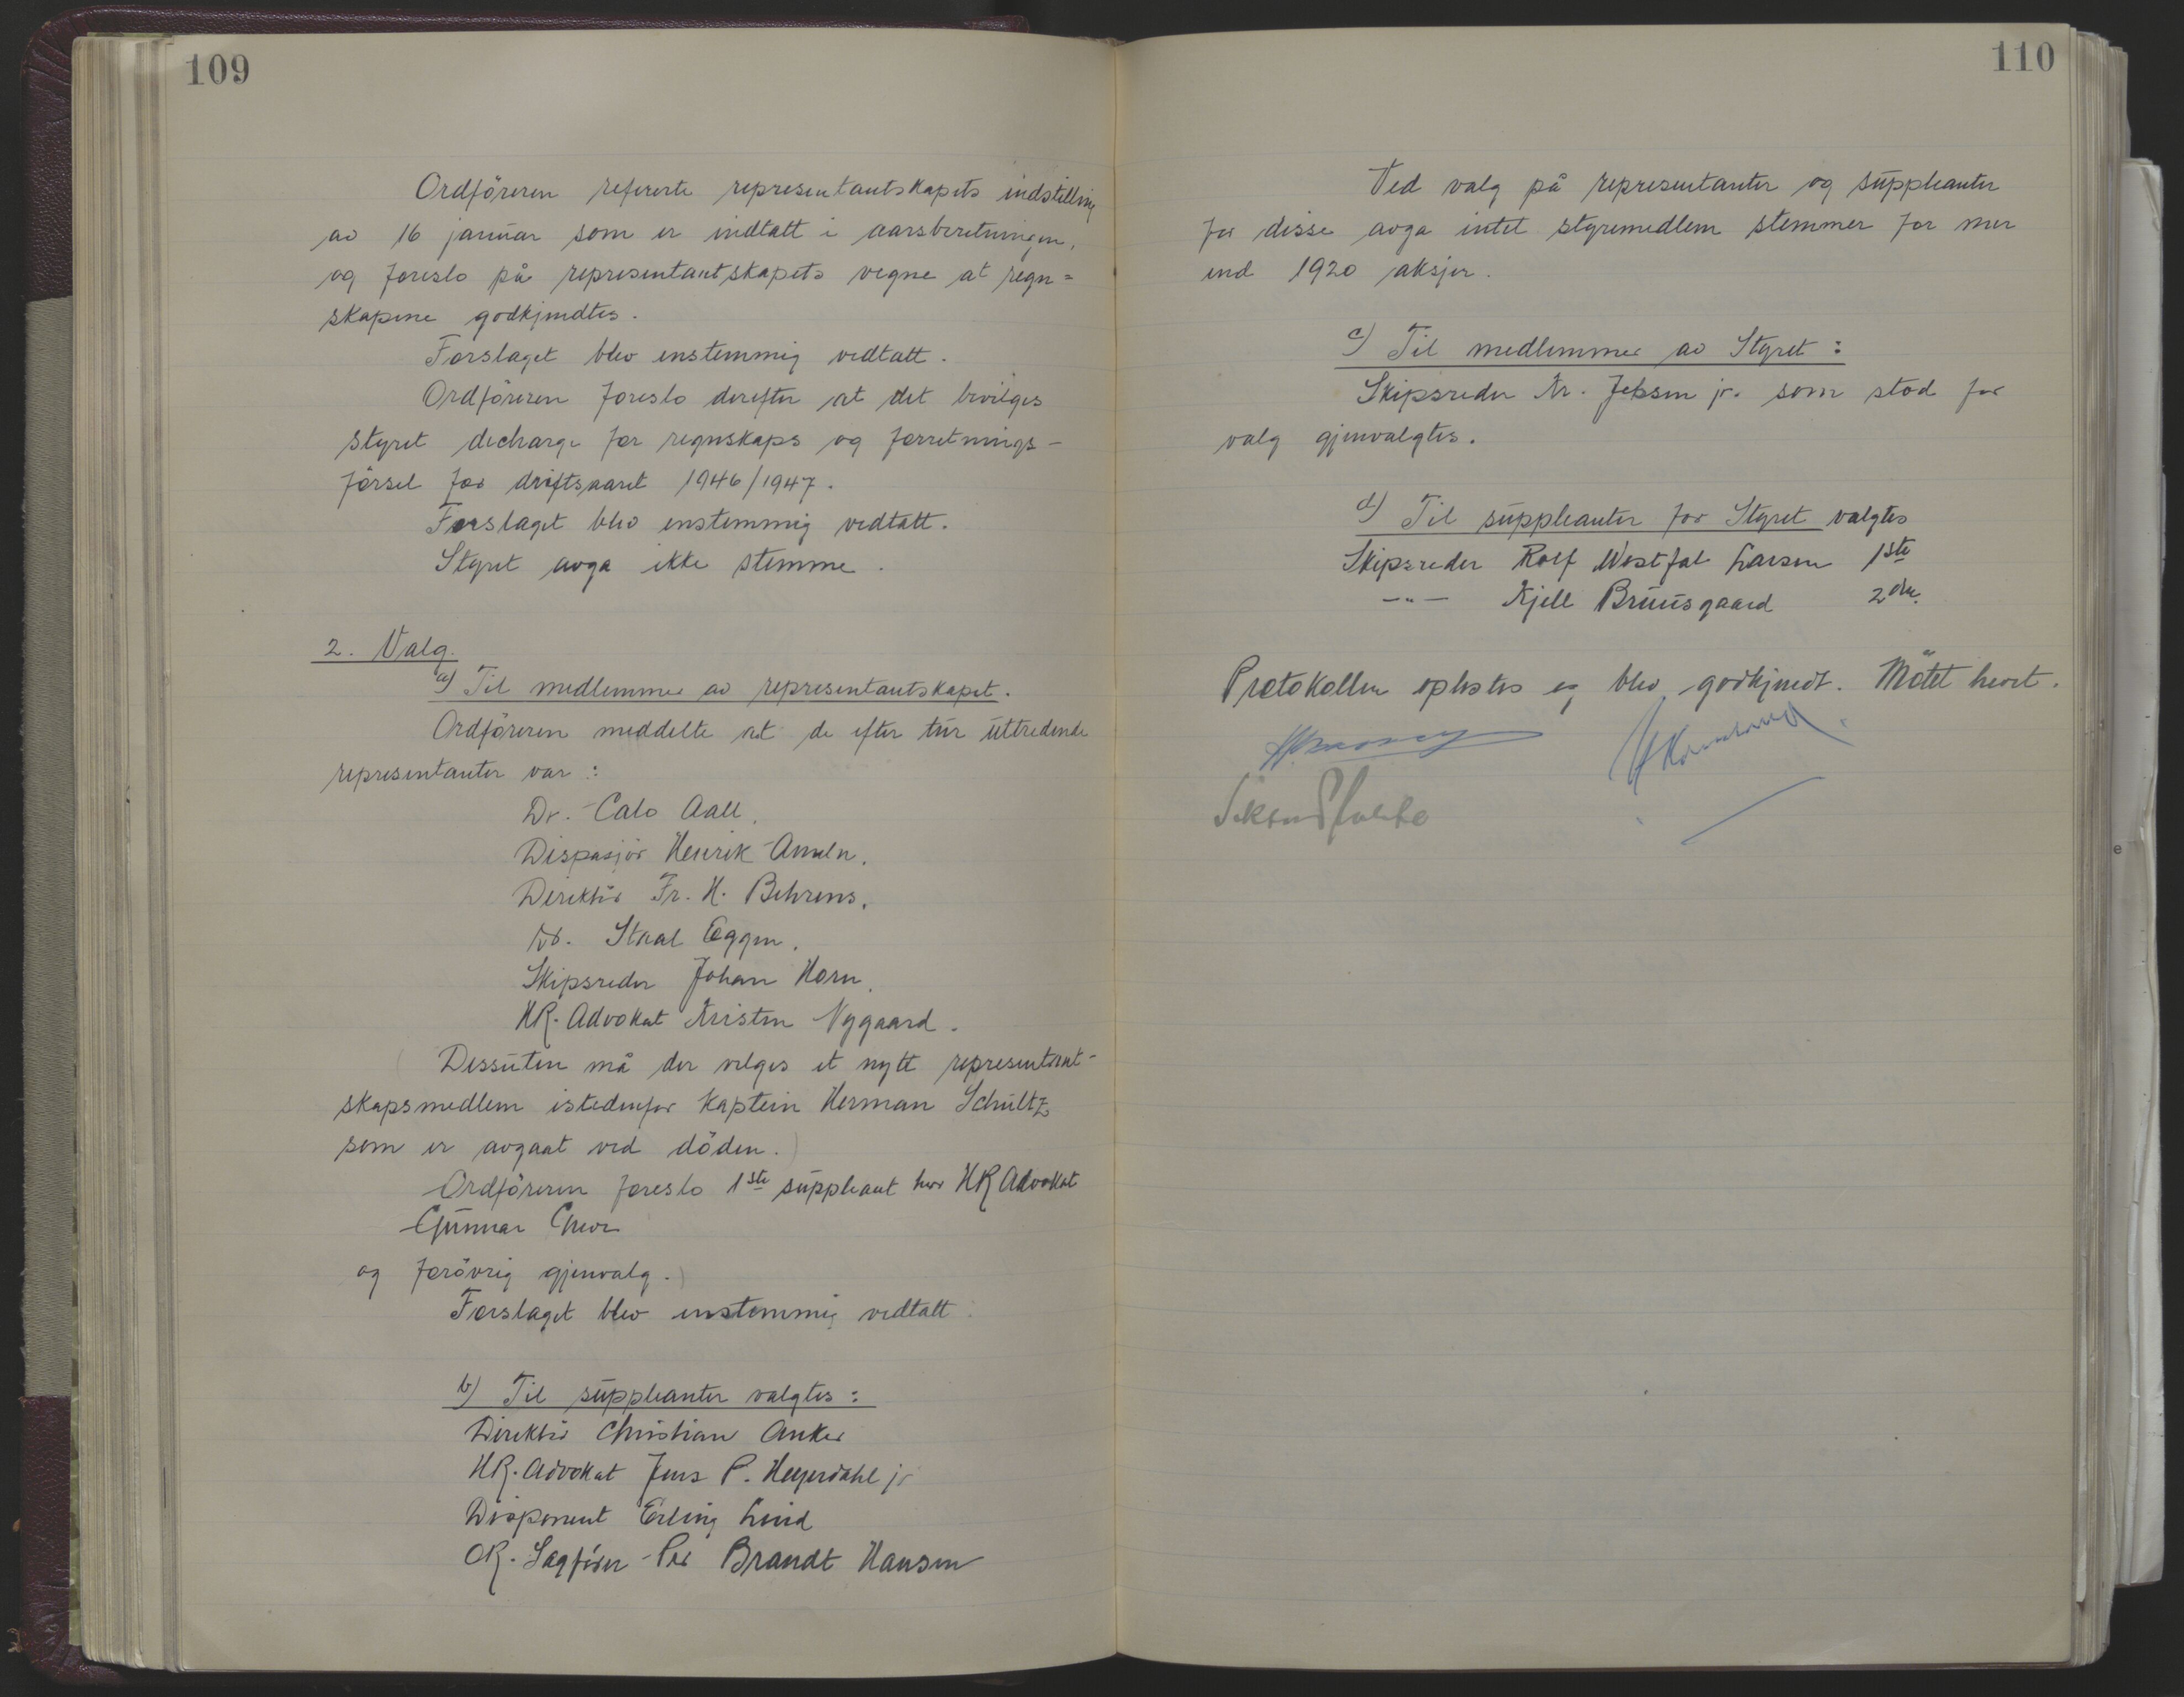 109
Ordføreren refererte representantskapets indstilling
av 16 januar som er indtatt i aarsberetningen,
og foreslo på representantskapets vegne at regn=
skapene godkjendtes.
Forslaget blev enstemmig vedtatt.
Ordføreren foreslo derefter at det bevilges
styret decharge for regnskaps og forretnings-
førsel for driftsaaret 1946/1947.
Forslaget blev enstemmig vedtatt.
Styret avga ikke stemme.
2. Valg.
a) Til medlemmer av representantskapet.
Ordføreren meddelte at de efter tur uttredende
representanter var:
Dr. Cato Aall.
Dispasjør Henrik Ameln.
Direktør Fr. H. Behrens.
Staal Eggen.
Skipsreder Johan Horn.
HR. Advokat Kristen Nygaard.
Dessuten må der velges et nytt representant-
skapsmedlem istedenfor Kaptein Herman Schultz
som er avgaat ved døden.)
Ordføreren foreslo 1ste suppleant herr HR Advokat
Gunnar
og forøvrig gjenvalg.)
Forslaget blev enstemmig vedtatt.
b) Til suppleanter valgtes:
Direktør Christian Anker
HR. Advokat Jens P. Heyerdahl jr
Disponent Erling Lind
OR. Sagfører Per Brandt Hansen
110
Ved valg på representanter og suppleanter
for disse avga intet styremedlem stemmer for mer
end 1920 aksjer.
c) Til medlemmer av Styret:
Skipsreder Kr. Jebsen jr. som stod for
valg gjenvalgtes.
d) Til suppleanter for Styret valgtes
Skipsreder Rolf Westfal Larsen 1ste
—"— Kjell Bruusgaard 2den.
Protokollen oplestes og blev godkjendt. Møtet hevet.